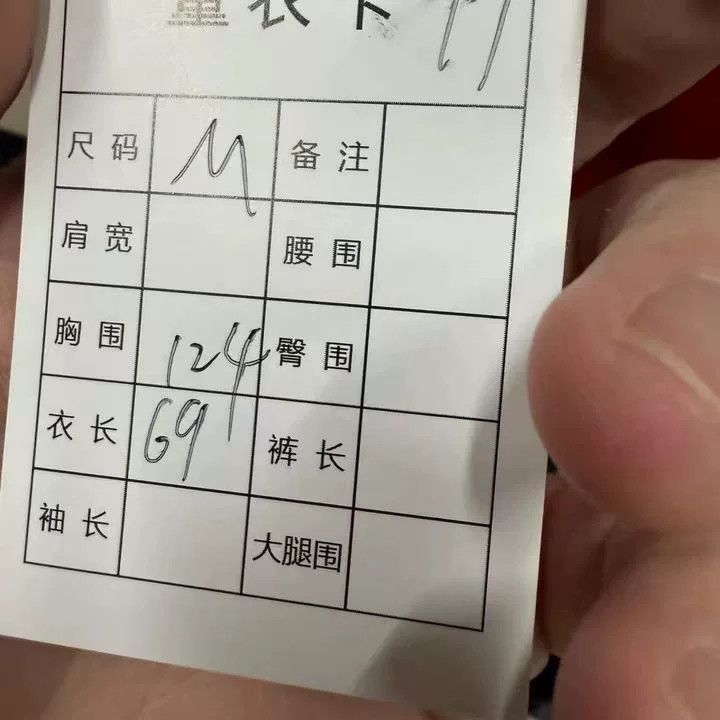 衣卡
尺码 M 备注
肩宽 腰围
胸围 124 臀围
衣长 69 裤长
袖长 大腿围